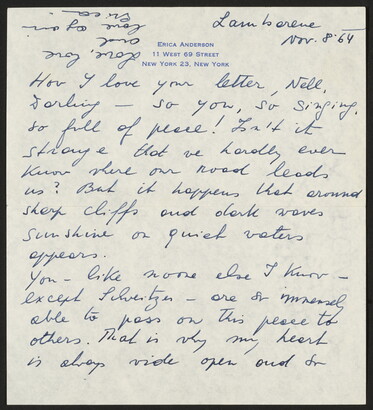 Lambarene
Nov. 8 '64
ERICA ANDERSON
11 WEST 69 STREET
NEW YORK 23, NEW YORK
How I love your letter, Nell,
Darling — so you, so singing,
so full of peace! Isn't it
strange that we hardly ever
know where our road leads
us? But it happens that around
sharp cliffs and dark waves
sunshine on quiet waters
appears.
You — like noone else I know —
except Schweitzer — are so immensely
able to pass on this peace to
others. That is why my heart
is always wide open and so
Love, love
and
love again
Erica